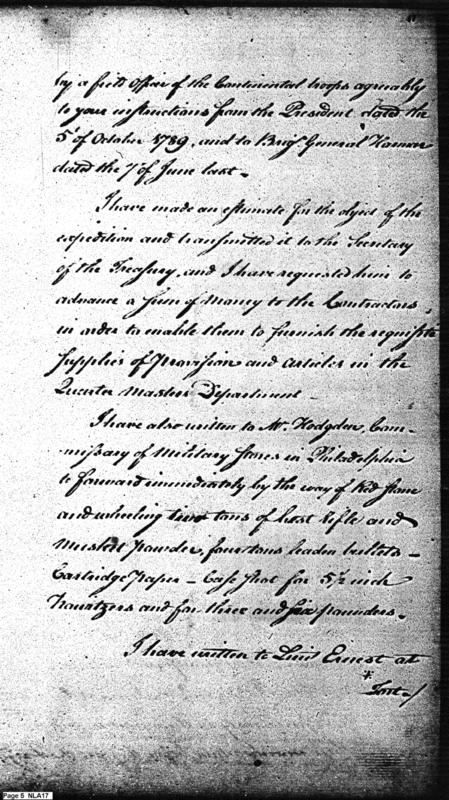 by a field officer of the Continental troops agreeably
to your instructions from the President dated the
5th of October 1789, and to Brigr General Harmar
dated the 7th of June last.
I have made an estimate for the object of the
expedition and transmitted it to the Secretary
of the Treasury, and I have requested him to
advance a sum of money to the Contractors,
in order to enable them to furnish the requisite
supplies of Provision and articles in the
Quarter Masters Department
I have also written to Mr. Hodgdon, Com-
missary of Military Stores in Philadelphia
to forward immediately by the way of Red Stone
and wheeling two tons of best rifle and
Musket Powder, four tons leaden bullets –
Cartridge Paper – Case shot for 5½ inch
Howitzers and for three and six pounders.
I have written to Lieut Ernest at
Fort /
Page 5 NLA17